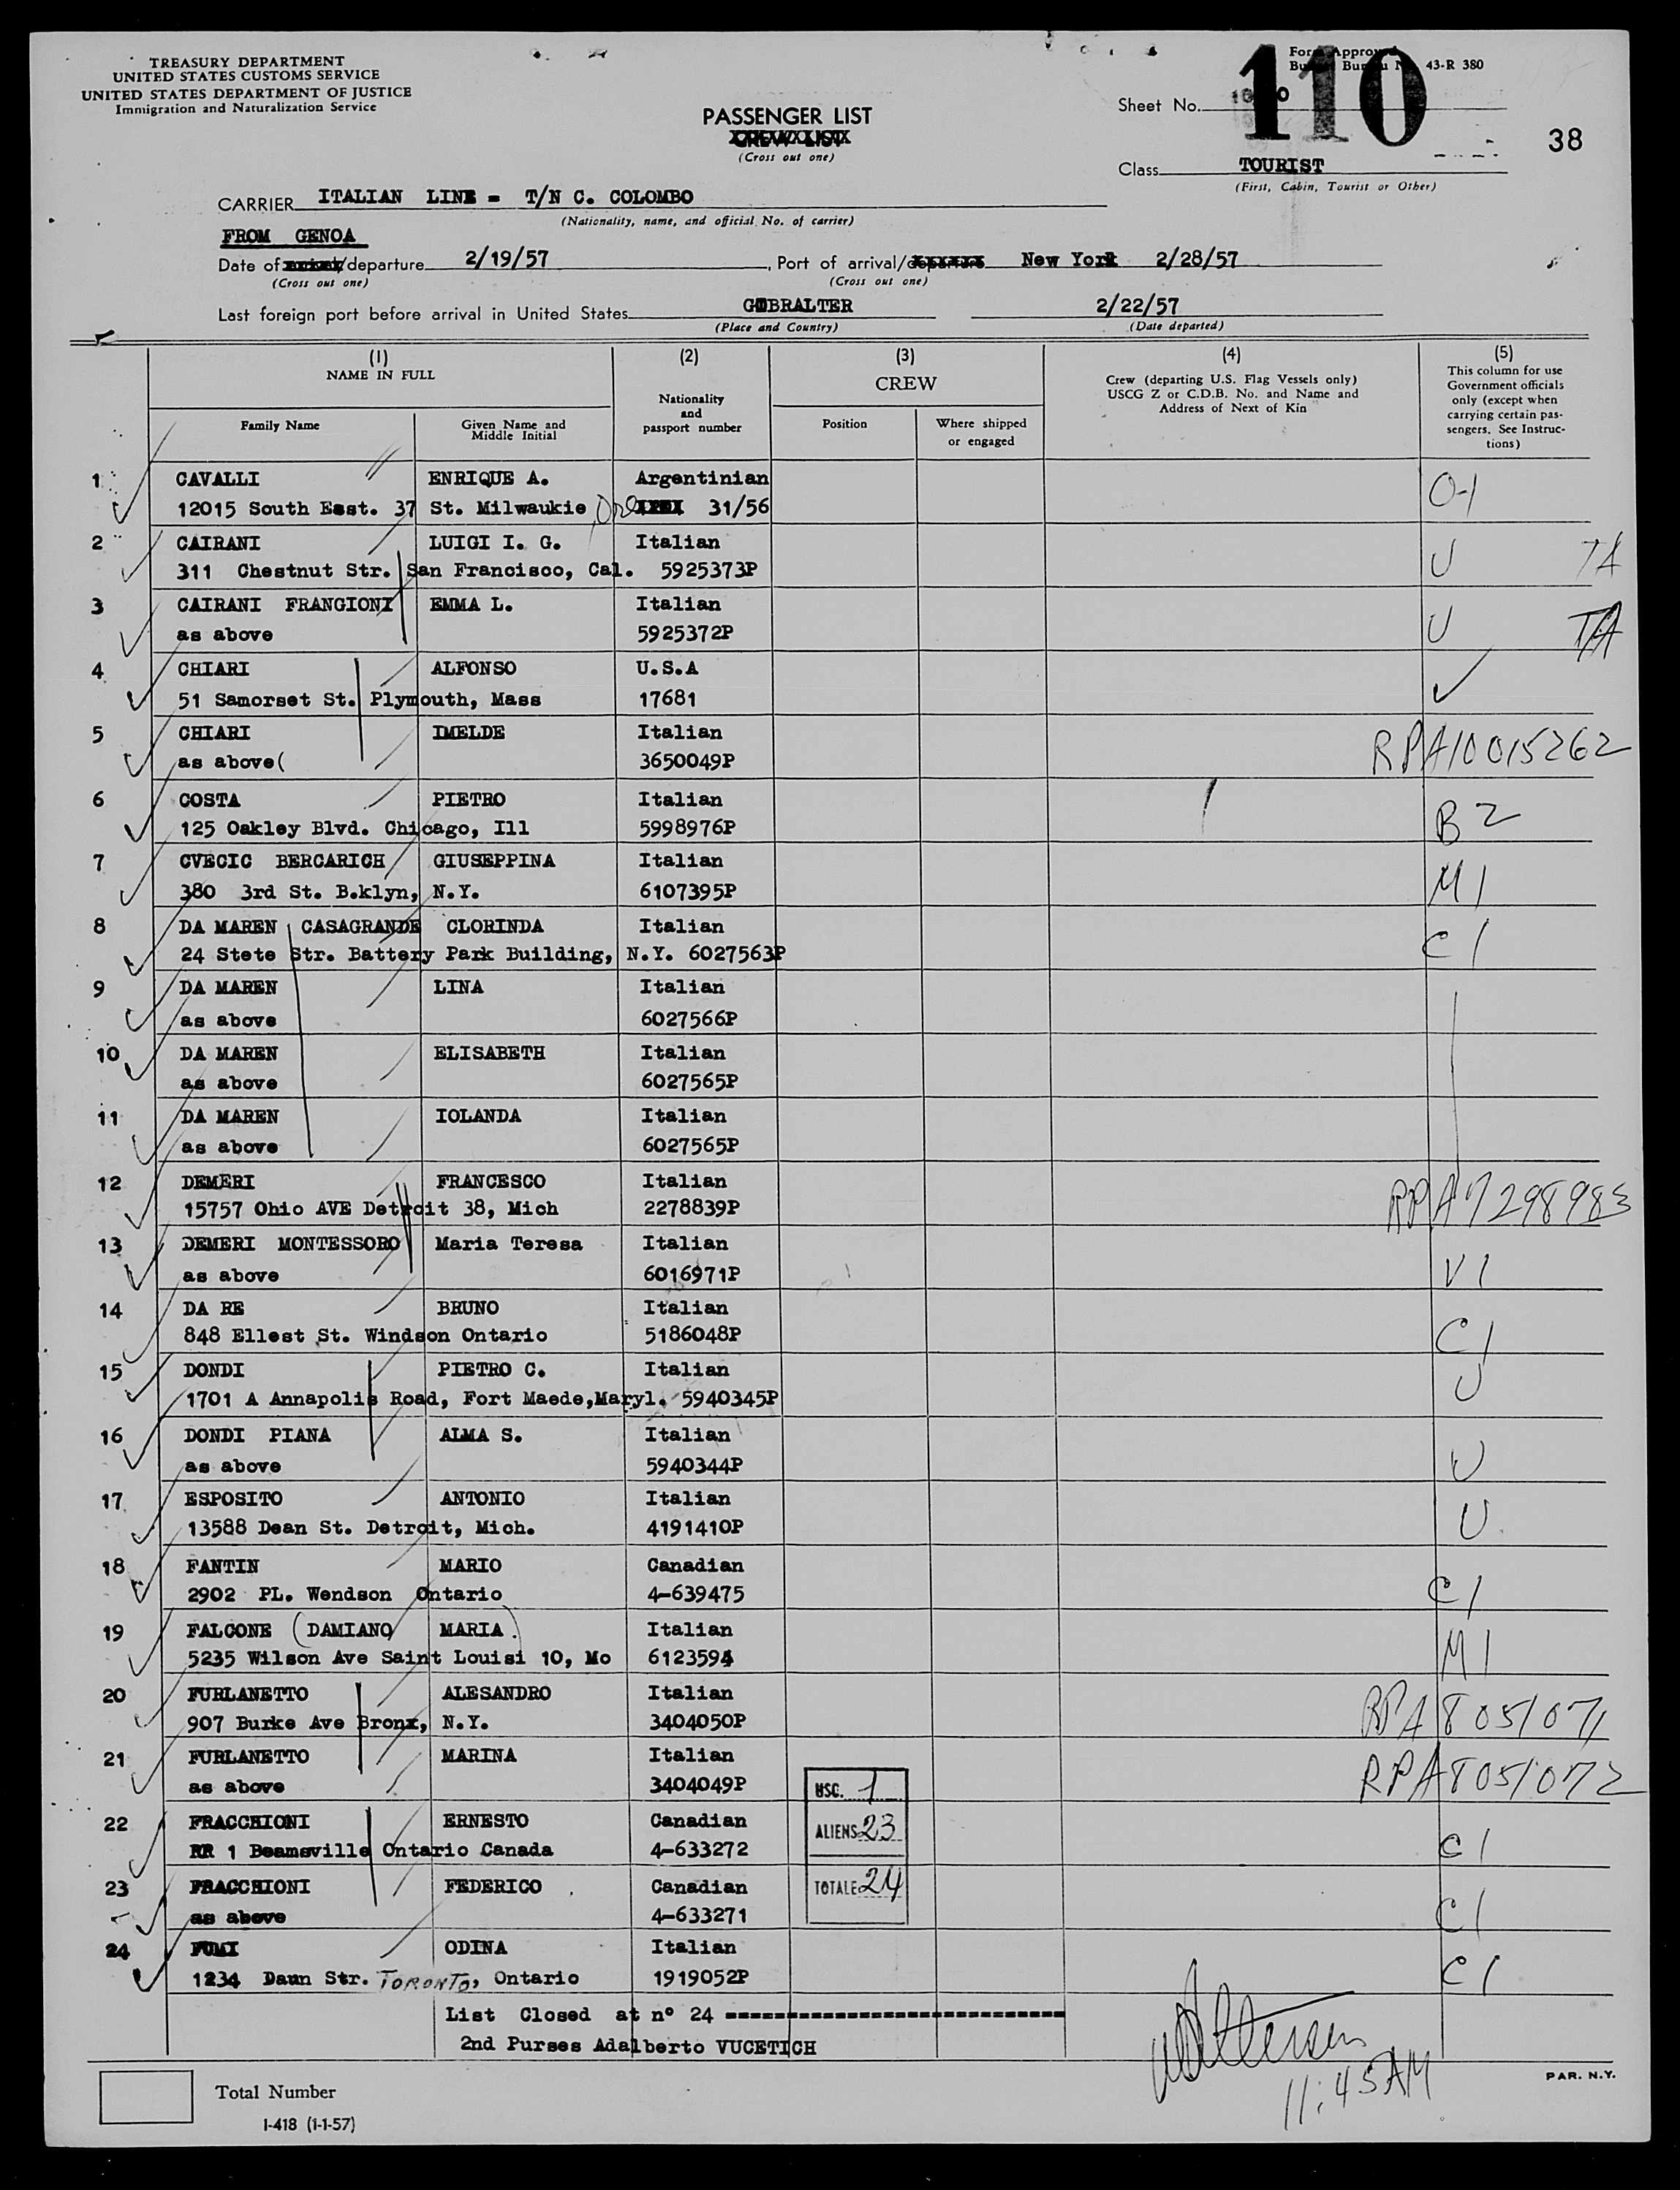 TREASURY DEPARTMENT
UNITED STATES CUSTOMS SERVICE
UNITED STATES DEPARTMENT OF JUSTICE
Immigration and Naturalization Service
Form Approved
Budget Bureau No. 43-R 380
PASSENGER LIST
CREW LIST
(Cross out one)
Sheet No. 110
38
Class TOURIST
(First, Cabin, Tourist or Other)
CARRIER ITALIAN LINE - T/N C. COLOMBO
(Nationality, name, and official No. of carrier)
FROM GENOA
Date of arrival/departure 2/19/57, Port of arrival/departure New York 2/28/57
(Cross out one) (Cross out one)
Last foreign port before arrival in United States GIBRALTER 2/22/57
(Place and Country) (Date departed)
(1) (2) (3) (4) (5)
NAME IN FULL
Family Name
Given Name and Middle Initial
Nationality and passport number
CREW
Position
Where shipped or engaged
Crew (departing U.S. Flag Vessels only)
USCG Z or C.D.B. No. and Name and
Address of Next of Kin
This column for use
Government officials
only (except when
carrying certain pas-
sengers. See Instruc-
tions)
1 CAVALLI ENRIQUE A. Argentinian O-1
12015 South East. 37 St. Milwaukie Ore 31/56
2 CAIRANI LUIGI I. G. Italian U TA
311 Chestnut Str. San Francisco, Cal. 5925373P
3 CAIRANI FRANGIONI EMMA L. Italian U TA
as above 5925372P
4 CHIARI ALFONSO U.S.A
51 Samorset St. Plymouth, Mass 17681
5 CHIARI IMELDE Italian RPA10015262
as above( 3650049P
6 COSTA PIETRO Italian B2
125 Oakley Blvd. Chicago, Ill 5998976P
7 CVECIC BERCARICH GIUSEPPINA Italian M1
380 3rd St. B.klyn, N.Y. 6107395P
8 DA MAREN CASAGRANDE CLORINDA Italian C1
24 Stete Str. Battery Park Building, N.Y. 6027563P
9 DA MAREN LINA Italian
as above 6027566P
10 DA MAREN ELISABETH Italian
as above 6027565P
11 DA MAREN IOLANDA Italian
as above 6027565P
12 DEMERI FRANCESCO Italian RPA7298983
15757 Ohio AVE Detroit 38, Mich 2278839P
13 DEMERI MONTESSORO Maria Teresa Italian V1
as above 6016971P
14 DA RE BRUNO Italian C1
848 Ellest St. Windson Ontario 5186048P
15 DONDI PIETRO C. Italian U
1701 A Annapolis Road, Fort Maede,Maryl. 5940345P
16 DONDI PIANA ALMA S. Italian U
as above 5940344P
17 ESPOSITO ANTONIO Italian U
13588 Dean St. Detroit, Mich. 4191410P
18 FANTIN MARIO Canadian C1
2902 PL. Wendson Ontario 4-639475
19 FALCONE (DAMIANO MARIA) Italian M1
5235 Wilson Ave Saint Louisi 10, Mo 6123594
20 FURLANETTO ALESANDRO Italian RPA8051071
907 Burke Ave Bronx, N.Y. 3404050P
21 FURLANETTO MARINA Italian RPA8051072
as above 3404049P
USC. 1
22 FRACCHIONI ERNESTO Canadian ALIENS 23 C1
RR 1 Beamsville Ontario Canada 4-633272
23 FRACCHIONI FEDERICO Canadian TOTALE 24 C1
as above 4-633271
24 FUMI ODINA Italian C1
1234 Daun Str. TORONTO, Ontario 1919052P
List Closed at n° 24
2nd Purses Adalberto VUCETICH
11:45AM
PAR. N.Y.
Total Number
I-418 (1-1-57)